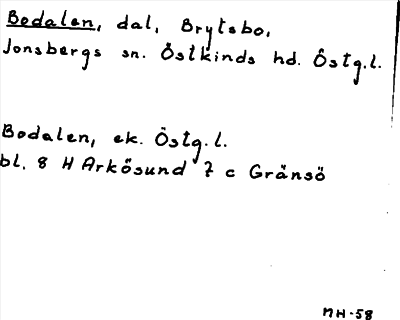 Bodalen, dal, Brytsbo,
Jonsbergs sn. Östkinds hd. Östg.l.
Bodalen, ek. Östg.l.
bl. 8 H Arkösund 7 c Gränsö
MH-58